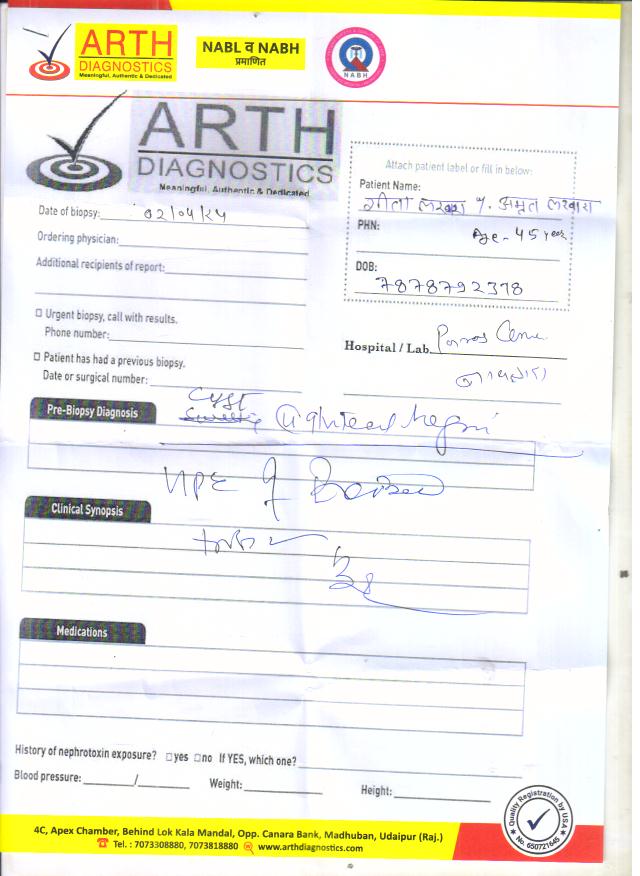 ARTH
DIAGNOSTICS
Meaningful, Authentic & Dedicated
NABL व NABH
प्रमाणित
NABH
ARTH
DIAGNOSTICS
Meaningful, Authentic & Dedicated
Attach patient label or fill in below:
Patient Name:
गीता लखारा % अमृत लखारा
PHN:
Age - 45 year
DOB:
7878792378
Date of biopsy: 02/04/24
Ordering physician:
Additional recipients of report:
Urgent biopsy, call with results.
Phone number:
Hospital / Lab.
Patient has had a previous biopsy.
Date or surgical number:
Pre-Biopsy Diagnosis
CYST
HPE of
Clinical Synopsis
Medications
History of nephrotoxin exposure? □yes □no If YES, which one?
Blood pressure: ______/______ Weight: ______ Height: ______
Quality Registration by USA
No. 650721645
4C, Apex Chamber, Behind Lok Kala Mandal, Opp. Canara Bank, Madhuban, Udaipur (Raj.)
Tel. : 7073308880, 7073818880 www.arthdiagnostics.com